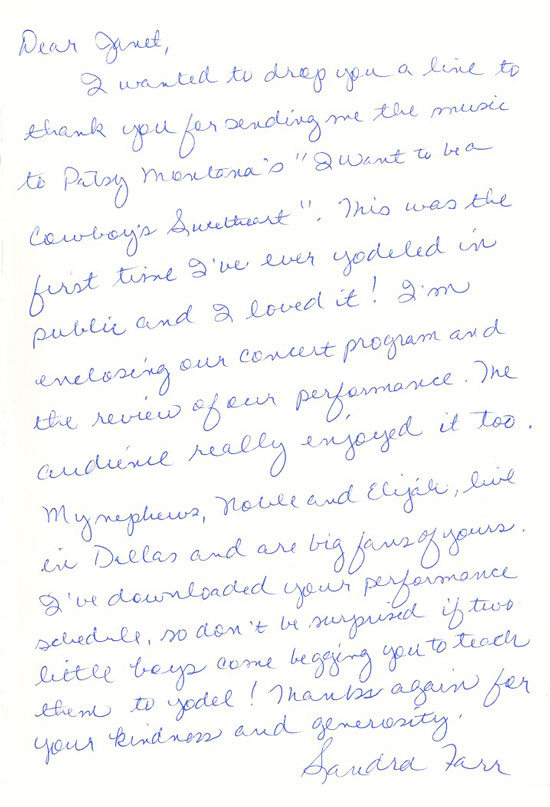 Dear Janet,
I wanted to drop you a line to
thank you for sending me the music
to Patsy Montana's "I Want to be a
Cowboy's Sweetheart". This was the
first time I've ever yodeled in
public and I loved it! I'm
enclosing our concert program and
the review of our performance. The
audience really enjoyed it too.
My nephews, Noble and Elijah, live
in Dallas and are big fans of yours.
I've downloaded your performance
schedule, so don't be surprised if two
little boys come begging you to teach
them to yodel! Thanks again for
your kindness and generosity.
Sandra Farr